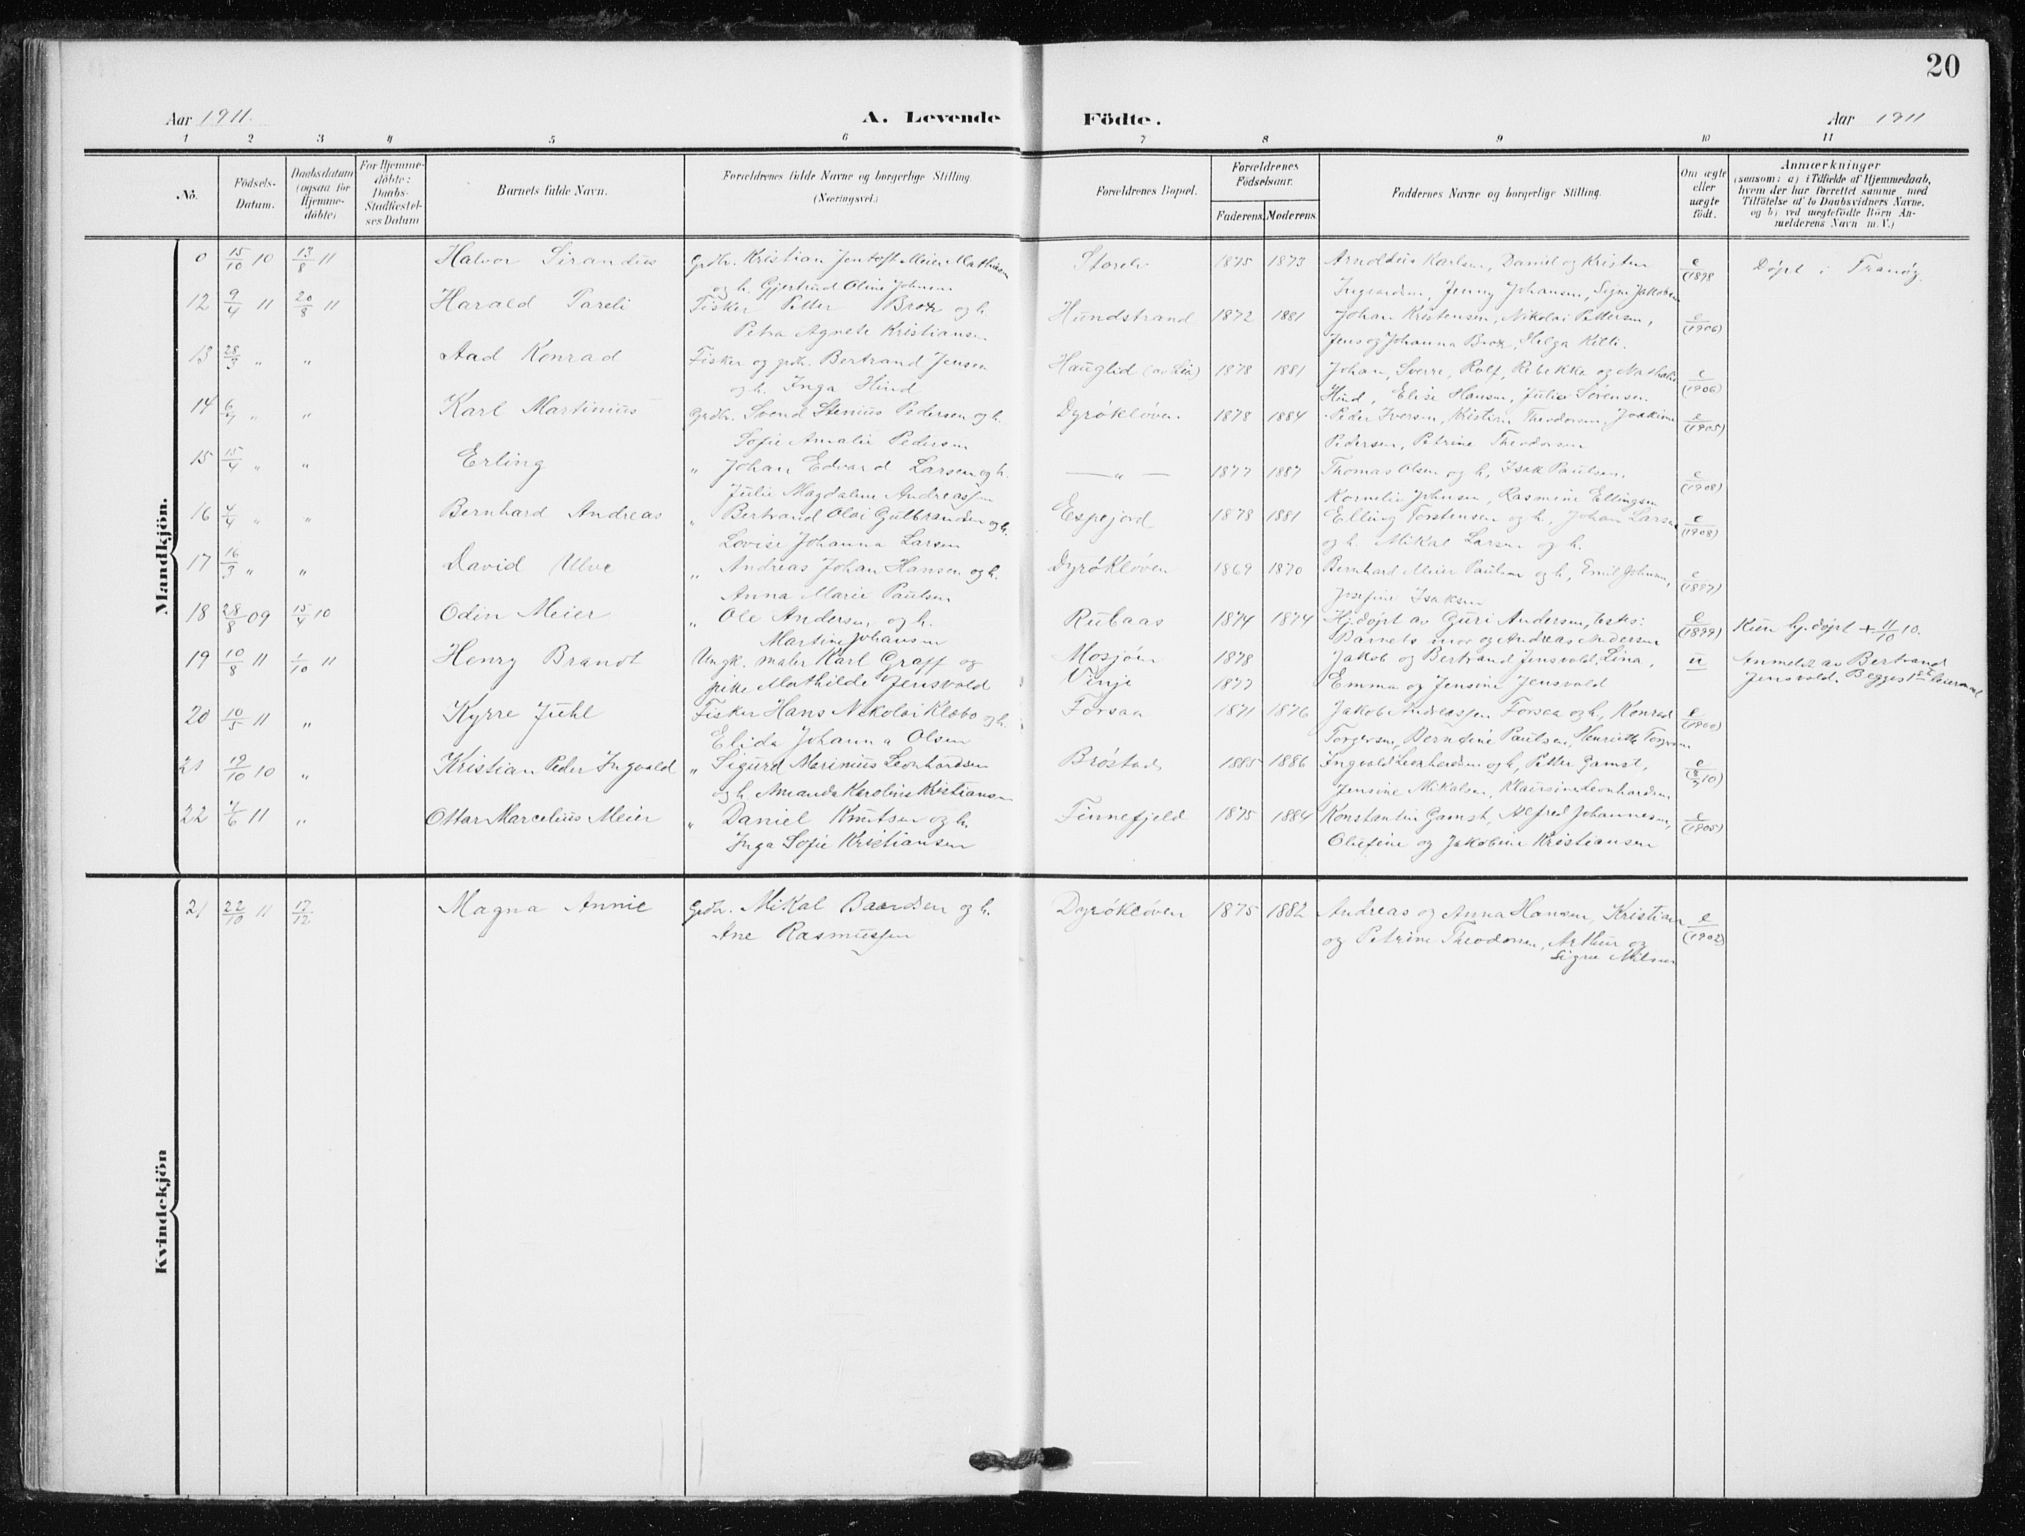 20
Aar 1911. A. Levende Födte. Aar 1911
1 2 3 4 5 6 7 8 9 10 11
No. Födsels-Datum. Daabsdatum (ogsaa for Hjemme-döbte) For Hjemme-döbte: Daabs-Stadfæstel-ses Datum Barnets fulde Navn. Forældrenes fulde Navne og borgerlige Stilling. (Næringsvei.) Forældrenes Bopæl. Forældrenes Födselsaar. Faderens. Moderens. Faddernes Navne og borgerlige Stilling. Om ægte eller uægte födt. Anmærkninger (saasom: a) i Tilfælde af Hjemmedaab, hvem der har forrettet samme med Tilföielse af to Daabsvidners Navne. og b) ved uegtefödte Börn An-melderens Navn m. V.)
Mandkjön.
0 15/10 10 13/8 11 Halvor Sirandius Grdbr. Kristian Jentoft Meier Mathisen 1875 1873 Karlsen, Daniel og Kristen e (1898 Døpt i Tranøy
og h. Gjertrud Oline Johnsen Ingvardsen, Jenny Johansen, Signe Jakobsen
12 9/4 11 20/8 11 Harald Pareli Fisker Petter Brox og h. Hundstrand 1872 1881 Johan Kristensen, Nikolai Pettersen, e (1906)
Petra Agnete Kristiansen Jens og Johanna Brox, Helga Killi.
13 28/3 " " Aad Konrad Fisker og grdr. Bertrand Jensen Hauglid 1878 1881 Johan, Sverre, Rolf, Rebekka og Nathalie e (1906)
og h. Inga Hind Hind, Elise Hansen, Julie Sørensen.
14 6/4 " " Karl Martinius Grdbr. Svend Stenius Pedersen og h. Dyrøkløven 1878 1884 Peder Iversen, Kristian Theodorsen, Joakime e (1905)
Sofie Amalie Pedersen Pedersen, Petrine Theodorsen
15 15/4 " " Erling " Johan Edvard Larsen og h. — " — 1877 1887 Thomas Olsen og h., Isak Paulsen, e (1908)
Julie Magdaline Andreassen Kornelie Johnsen, Rasmine Ellingsen
16 4/4 " " Bernhard Andreas " Bertrand Olai Gulbrandsen og h. Espejord 1878 1881 Elling Torstensen og h., Johan Larsen e (1908)
Lovise Johanna Larsen og h. Mikal Larsen og h.
17 16/3 " " David Ulve " Andreas Johan Hansen og h. Dyrøkløven 1869 1870 Bernhard Meier Paulsen og h., Emil Johnsen, e (1897)
Anna Marie Paulsen Josefine Isaksen
18 28/8 09 15/4 10 Odin Meier " Ole Andersen, og h. Rubaas 1874 1874 Hj.døpt av Guri Andersen, test: e (1899) Kun hj.døpt + 11/10 10.
Martine Johansen Barnets mor og Andreas Andersen
19 10/8 11 1/10 11 Henry Brandt Ungk. maler Karl Graff og Mosjøen 1878 Jakob og Bertrand Jensvold, Lina, u Anmeldt av Bertrand
pike Mathilde Jensvold Vinje 1877 Emma og Jensine Jensvold Jensvold. Begges 1ste leiermaal
20 10/5 11 " Kyrre Juhl Fisker Hans Nikolai Klæbo og h. Forsaa 1871 1876 Jakob Andreassen Forsaa og h., Konrad e (1900)
Elida Johanna Olsen Torgersen, Berntine Paulsen, Henriette Torgersen
21 19/10 10 " Kristian Peder Ingvald " Sigurd Marinius Leonhardsen Brøstad 1885 1886 Ingvald Leonhardsen og h., Petter Gamst, e
og h. Amanda Karoline Kristiansen Jensine Mikalsen, Leonhardsen
22 7/6 11 " Ottar Marcelius Meier " Daniel Knutsen og h. Finnefjeld 1875 1884 Konstantin Gamst, Alfred Johannesen, e (1905)
Inga Sofie Kristiansen Olufine og Jakobine Kristiansen
Kvindekjön
21 22/10 11 17/12 Magna Annie Grdbr. Mikal Baardsen og h. Dyrøkløven 1875 1882 Andreas og Anna Hansen, Kristian e (1902)
Ane Rasmussen og Petrine Theodorsen, Arthur og
Signe Nilsen